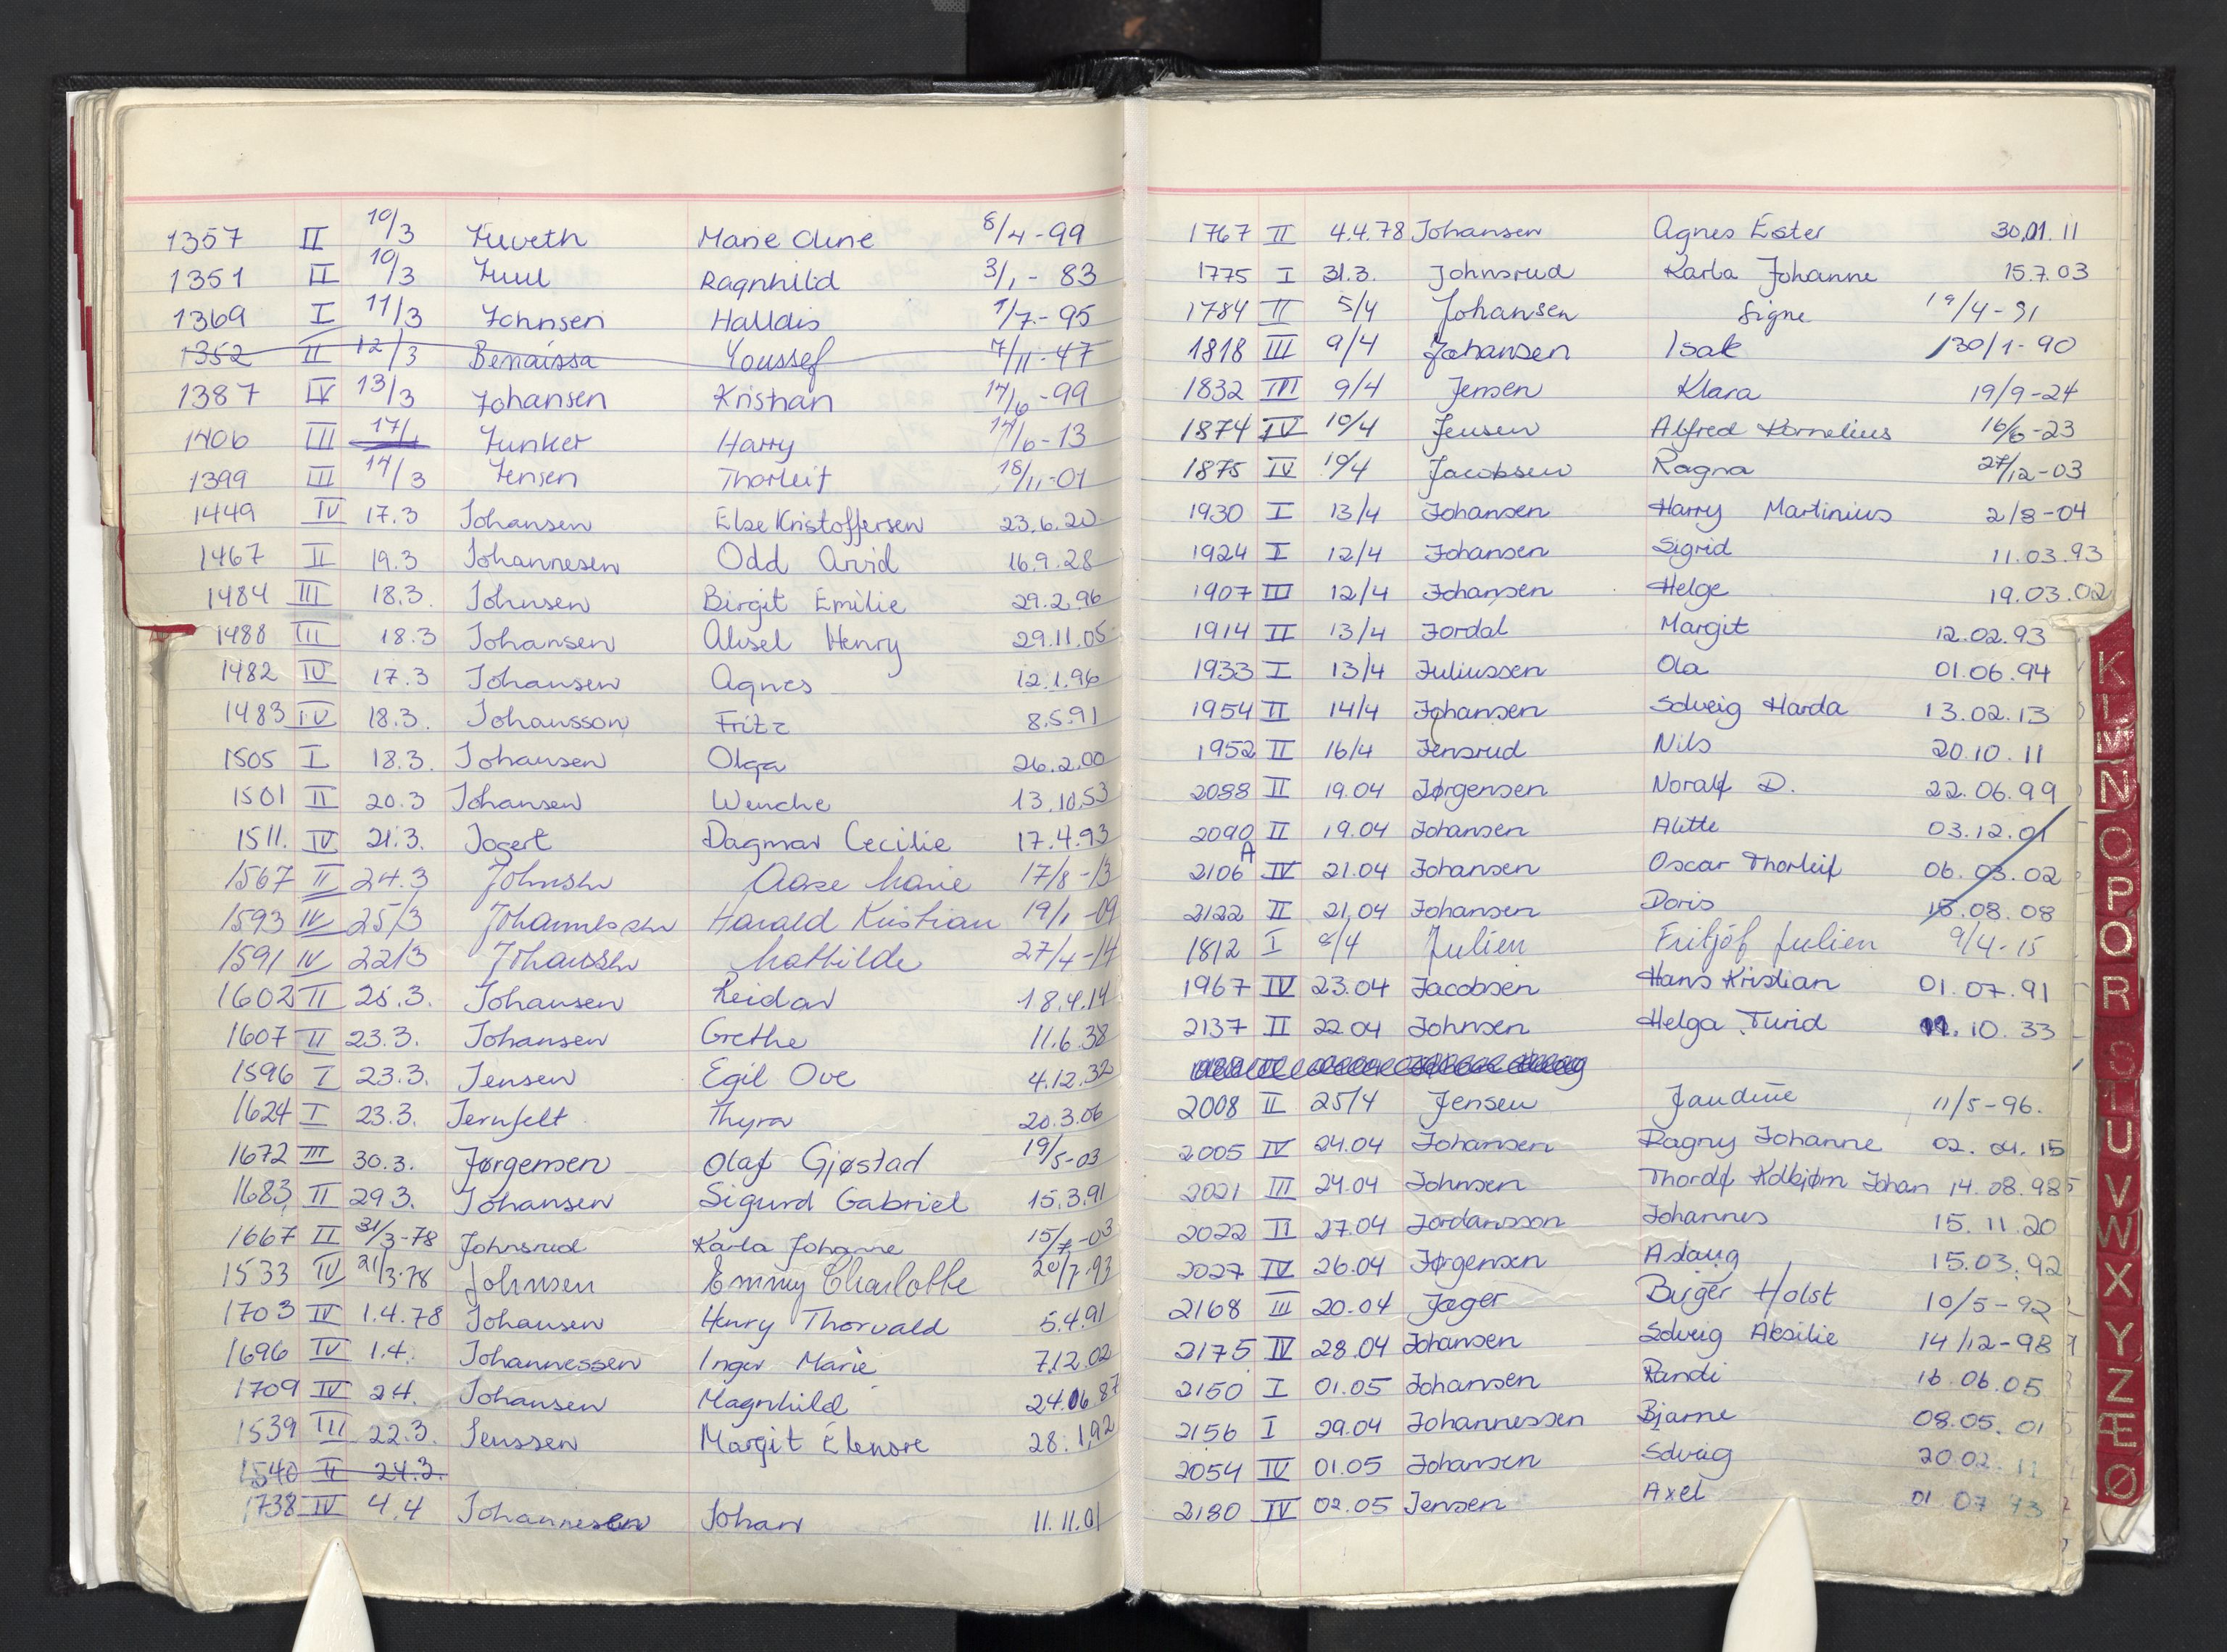 1357 II 10/3 Juveth Marie Oline 8/4-99
1351 II 10/3 Juul Ragnhild 3/1-83
1369 I 11/3 Johnsen Halldis 1/7-95
1352 II 12/3 Benaissa Youssef 7/11-47
1387 IV 13/3 Johansen Kristian 14/6-99
1406 III 17/1 Junker Harry 14/6-13
1399 III 14/3 Jensen Thorleif 18/11-01
1449 IV 17.3 Johansen Else Kristoffersen 23.6.20
1467 II 19.3 Johannesen Odd Arvid 16.9.28
1484 III 18.3. Johnsen Birgit Emilie 29.2.96
1488 III 18.3 Johansen Aksel Henry 29.11.05
1482 IV 17.3 Johansen Agnes 12.1.96
1483 IV 18.3. Johansson Fritz 8.5.91
1505 I 18.3. Johansen Olga 26.2.00
1501 II 20.3 Johansen Wenche 13.10.53
1511. IV 21.3. Jogert Dagmar Cecilie 17.4.93
1567 II 24.3 Johnsen Aase Marie 17/8-13
1593 IV 25/3 Johannessen Harald Kristian 19/1-09
1591 IV 22/3 Johanssen Mathilde 27/4-14
1602 II 25.3. Johansen Reidar 18.4.14
1607 II 23.3. Johansen Grethe 11.6.38
1596 I 23.3. Jensen Egil Ove 4.12.32
1624 I 23.3. Jernfelt Thyra 20.3.06
1672 III 30.3. Jørgensen Olaf Gjøstad 19/5-03
1683 II 29.3. Johansen Sigurd Gabriel 15.3.91
1667 II 31/3-78 Johnsrud Karla Johanne 15/7-03
1533 IV 21/3-78 Johnsen Emmy Charlotte 20/7-93
1703 IV 1.4.78 Johansen Henry Thorvald 5.4.91
1696 IV 1.4. Johannessen Inger Marie 7.12.02
1709 IV 2.4. Johansen Magnhild 24.06.87
1539 III 22.3. Jenssen Margit Elenore 28.1.92
1540 II 24.3.
1738 IV 4.4 Johannesen Johan 11.11.01
1767 II 4.4.78 Johansen Agnes Ester 30.01.11
1775 I 31.3. Johnsrud Karla Johanne 15.7.03
1784 II 5/4 Johansen Signe 19/4-91
1818 III 9/4 Johansen Isak 30/1-90
1832 III 9/4 Jensen Klara 19/9-24
1874 IV 10/4 Jensen Alfred Kornelius 16/6-23
1875 IV 10/4 Jacobsen Ragna 27/12-03
1930 I 13/4 Johansen Harry Martinius 2/8-04
1924 I 12/4 Johansen Sigrid 11.03.93
1907 III 12/4 Johansen Helge 19.03.02
1914 II 13/4 Jordal Margit 12.02.93
1933 I 13/4 Juliussen Ola 01.06.94
1954 II 14/4 Johansen Solveig Harda 13.02.13
1952 II 16/4 Jensrud Nils 20.10.11
2088 II 19.04 Jørgensen Noralf D. 22.06.99
2090 II 19.04 Johansen Alette 03.12.01
2106 A IV 21.04 Johansen Oscar Thorleif 06.03.02
2122 II 21.04 Johansen Doris 15.08.08
1812 I 8/4 Julien Fritjof Julien 9/4-15
1967 IV 23.04 Jacobsen Hans Kristian 01.07.91
2137 II 22.04 Johnsen Helga Turid 10.33
2008 II 25/4 Jensen 11/5-96.
2005 IV 24.04 Johansen Dagny Johanne 02.04.15
2021 III 24.04 Johnsen Thorolf Kolbjørn Johan 14.08.98
2022 II 27.04 Jordansson Johannes 15.11.20
2027 IV 26.04 Jørgensen Aslaug 15.03.92
2168 III 20.04 Jæger Birger Holst 10/5-92
2175 IV 28.04 Johansen Solveig Aksilie 14/12-98
2150 I 01.05 Johansen Randi 16.06.05
2156 I 29.04 Johannessen Bjarne 08.05.01
2054 IV 01.05 Johansen Solveig 20.02.11
2180 IV 02.05 Jensen Axel 01 07 73
K
L
M
N
O
P
Q
R
S
T
U
V
W
X
Y
Z
Æ
Ø